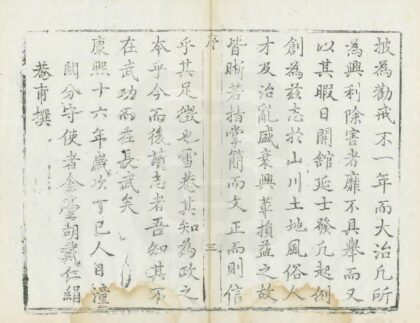 披為勸戒不一年而大治凡所
為興利除害者靡不具舉而又
以其暇日開館延士發凡起例
創為茲志於山川土地風俗人
才及治亂盛衰興革損益之故
皆晰若指掌簡而文正而則信
序
三
乎其足徵也雪巷其知為政之
本乎今而後讀志者吾知其不
在武功而在長武矣
康熙十六年歲次丁巳人日潼
關分守使者金臺胡戴仁絹
菴甫撰